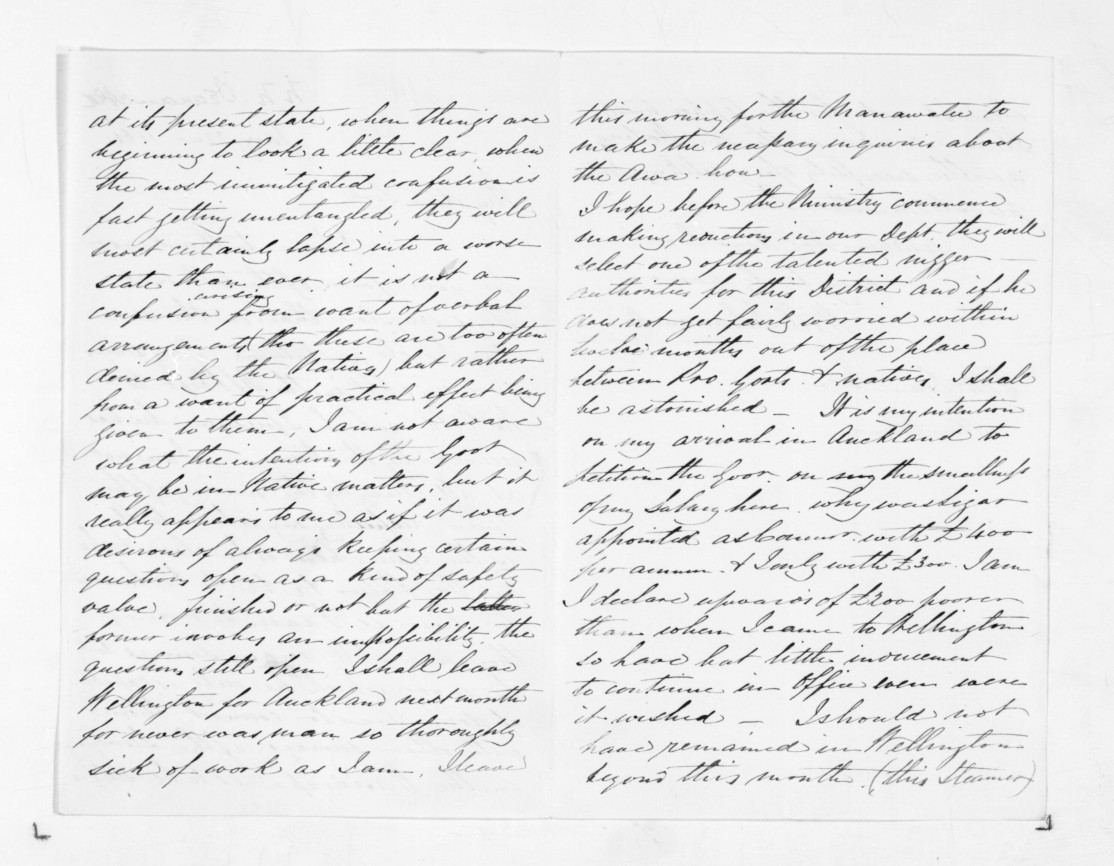 at its present state, when things are
beginning to look a little clear, when
the most immitigated confusion is
fast getting unentangled, they will
most certainly lapse into a worse
state than ever, it is not a
confusion arising from want of verbal
arrangements (tho these are too often
denied by the Natives) but rather
from a want of practical effect being
given to them, I am not aware
what the intentions of the Govt
may be in Native matters, but it
really appears to me as if it was
desirous of always keeping certain
questions open as a kind of safety
value, finished or not but the latter
former invokes an impossibility, the
questions still open I shall leave
Wellington for Auckland next month
for never was man so thoroughly
sick of work as I am, I leave
this morning for the Manawatu to
make the necessary inquiries about
the Awa hou
I hope before the Ministry commence
making reductions in our Dept. they will
select one of the talented nigger
authorities for this District and if he
does not get fairly worried within
twelve months out of the place
between Pro. Govts. & natives, I shall
be astonished — It is my intention
on my arrival in Auckland to
petition the Govr. on my the smallness
of my Salary here. why was
appointed as Commr. with £400
per annum. & I only with £300. I am
I declare upwards of £200 poorer
than when I came to Wellington
so have but little inducement
to continue in Office even were
it wished — I should not
have remained in Wellington
beyond this month. (this Steamer)